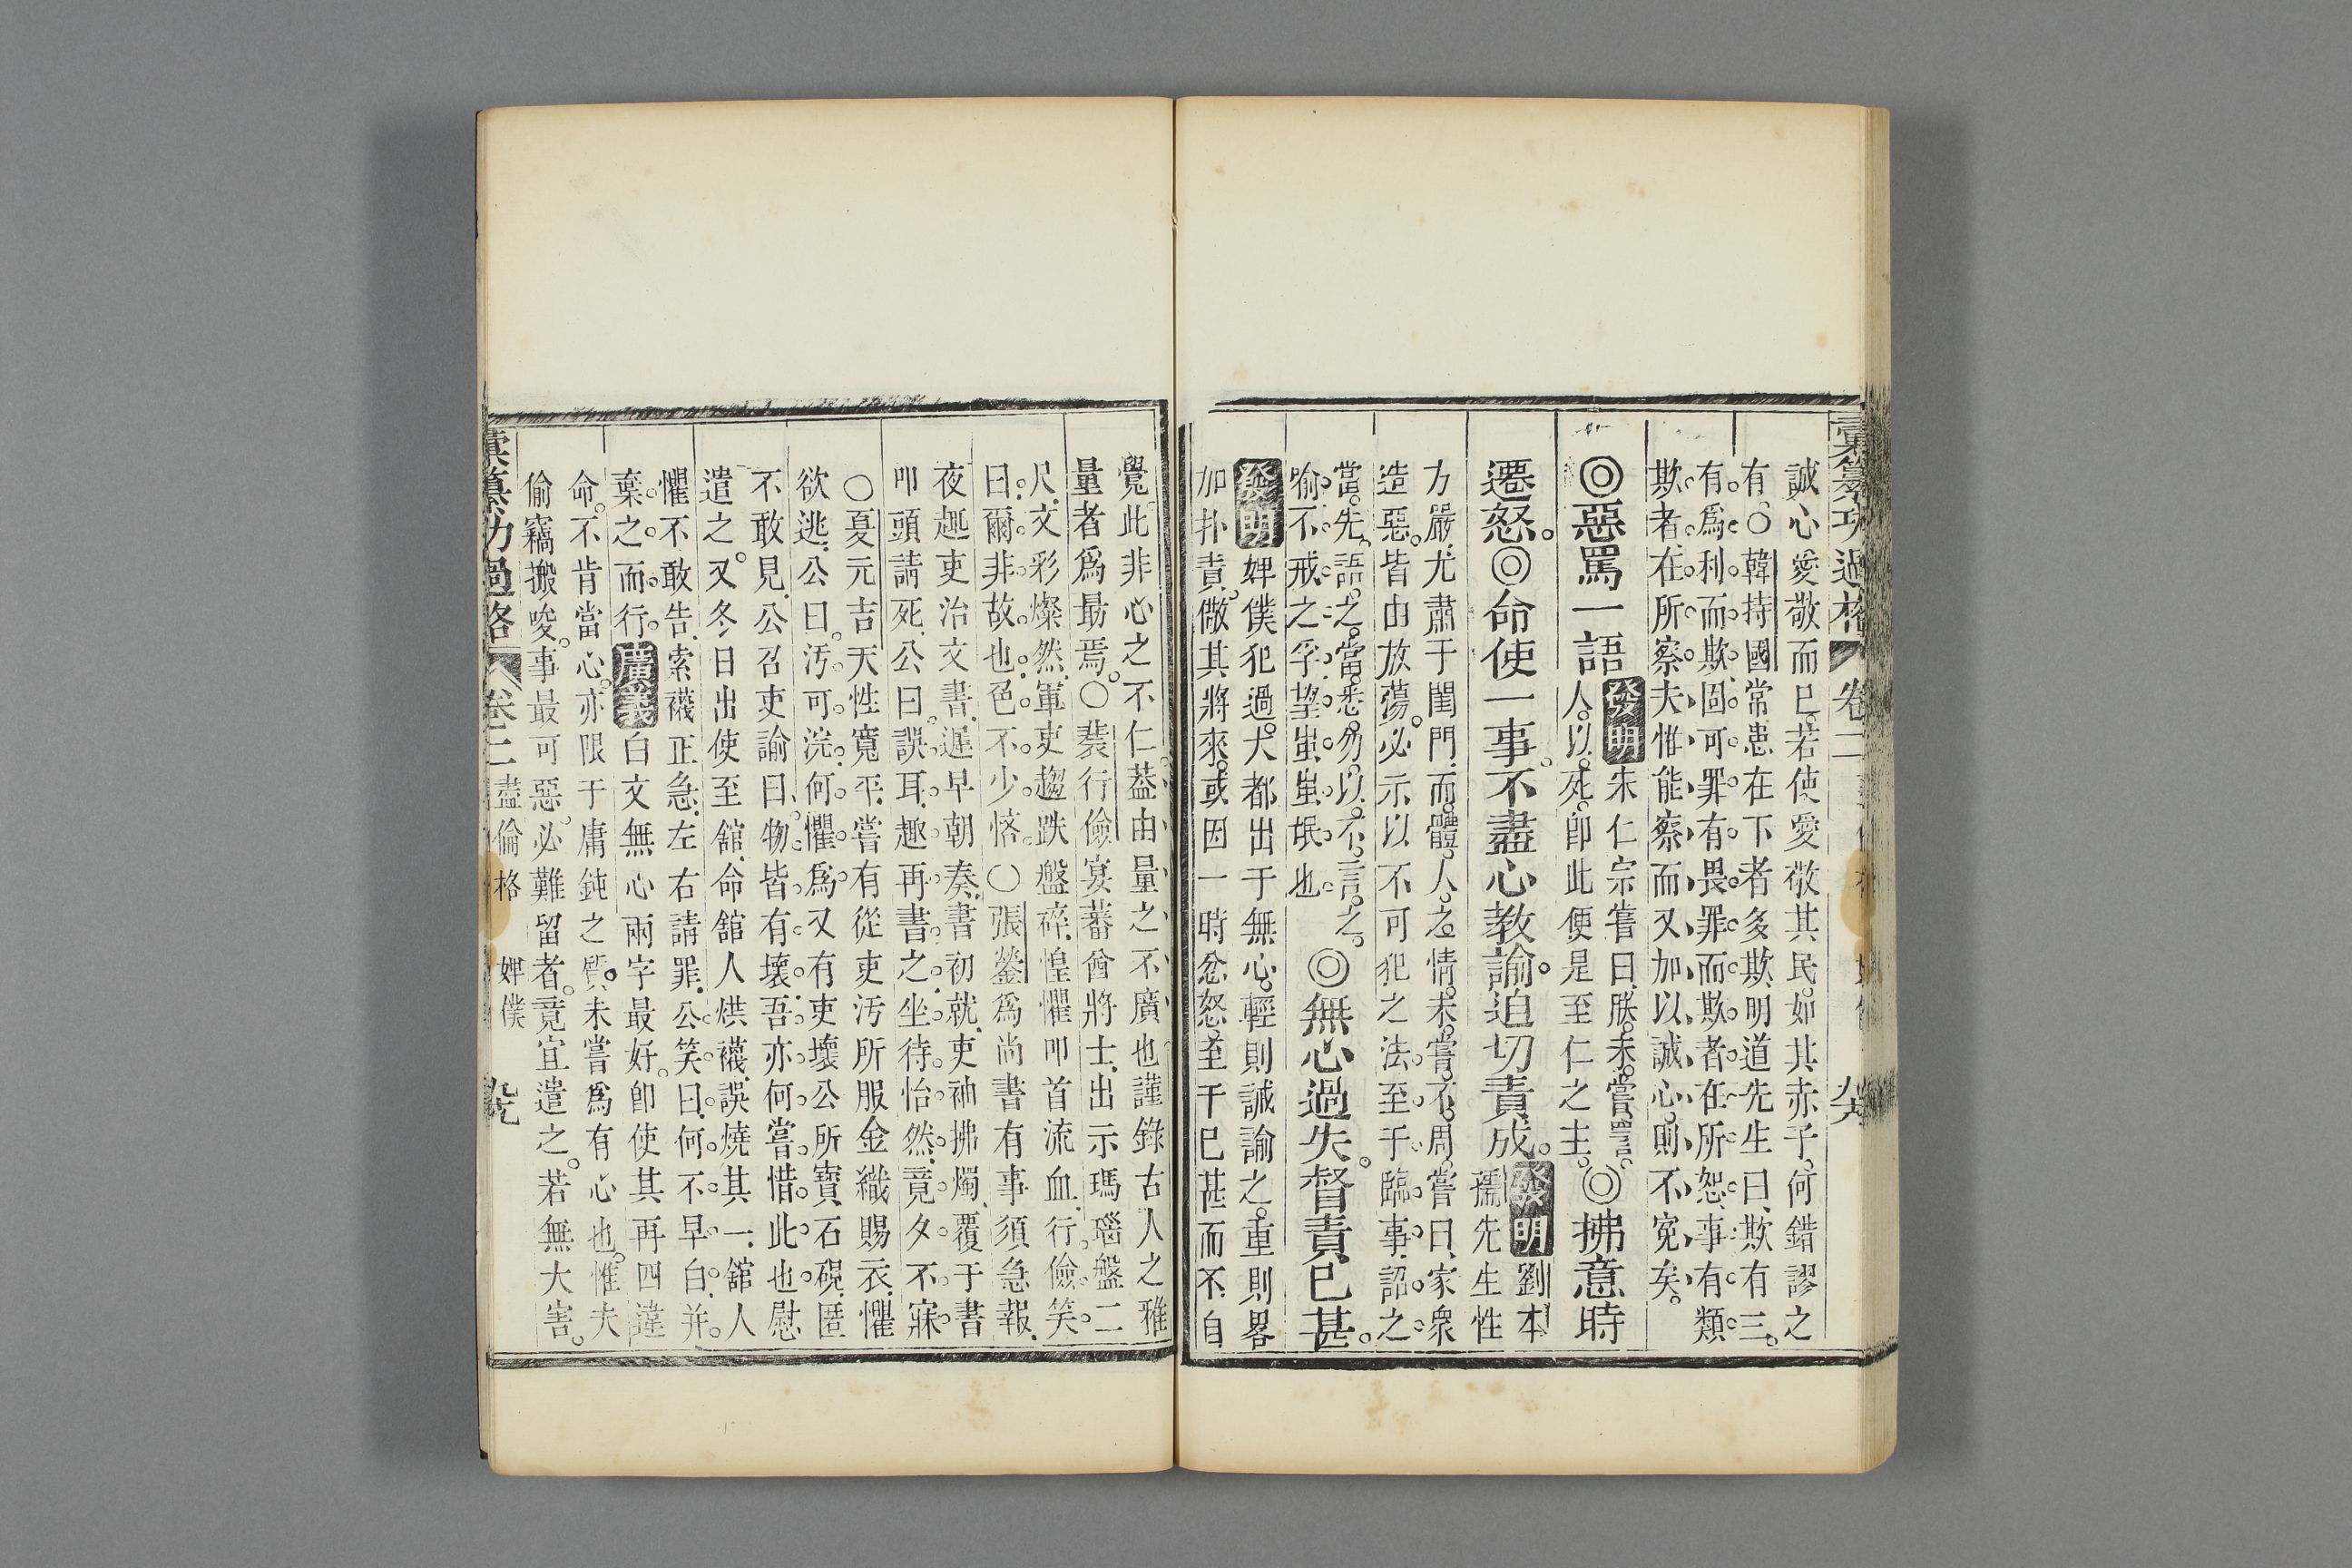 彙纂功過格 卷二
誠心愛敬而已。若使愛敬其民。如其赤子。何錯謬之
有。○韓持國常患在下者多欺。明道先生曰、欺有三。
有爲利而欺。固可罪。有畏罪而欺者。在所恕。事有類
欺者。在所察。夫惟能察而又加以誠心。則不寃矣。
◎惡罵一語 發明 朱仁宗嘗曰、朕。未。嘗。詈。
人。以。死。卽此便是至仁之主。 ◎拂意時
遷怒。◎命使一事。不盡心教諭。迫切責成。 發明 劉本
孺先生性
方嚴、尤肅于閨門、而。體。人。之。情。未。嘗。不。周。嘗曰、家衆
造惡。皆由放蕩。必示以不可犯之法。至于臨事。詔之
當。先。語。之。當。悉。勿。以。不。言。之。
喻。不。戒。之。孚。望。蚩。蚩。氓。也。 ◎無心過失。督責已甚。
發明 婢僕犯過。大都出于無心。輕則誡諭之。重則畧
加扑責。儆其將來。或因一時忿怒。至于已甚而不自
覺。此非心之不仁。葢由量之不廣也。謹錄古人之雅
量者爲最焉。○裴行儉宴蕃酋將士、出示瑪瑙盤二
尺、文彩燦然、軍吏趨跌盤碎、惶懼叩首流血、行儉笑
曰、爾非故也。色不少恡。○張鎣爲尚書有事須急報、
夜趣吏治文書、遲早朝奏、書初就、吏袖拂燭、覆于書
叩頭請死、公曰。誤耳、趣再書之。坐待怡然、竟夕不寐
○夏元吉天性寬平、嘗有從吏汚所服金織賜衣、懼
欲逃、公曰。汚可浣何懼爲又有吏壞公所寶石硯、匿
不敢見、公召吏諭曰、物皆有壞、吾亦何嘗惜此也慰
遣之。又冬日出使至舘、命舘人烘襪、誤燒其一、舘人
懼不敢告、索襪正急、左右請罪、公笑曰、何不早白、并
棄之而行。 廣義 白文無心兩字最好。卽使其再四違
命。不肯當心。亦限于庸鈍之質、未嘗爲有心也。惟夫
偷竊搬唆。事最可惡。必難留者。竟宜遣之。若無大害。
彙纂功過格 卷二 盡倫格 婢僕